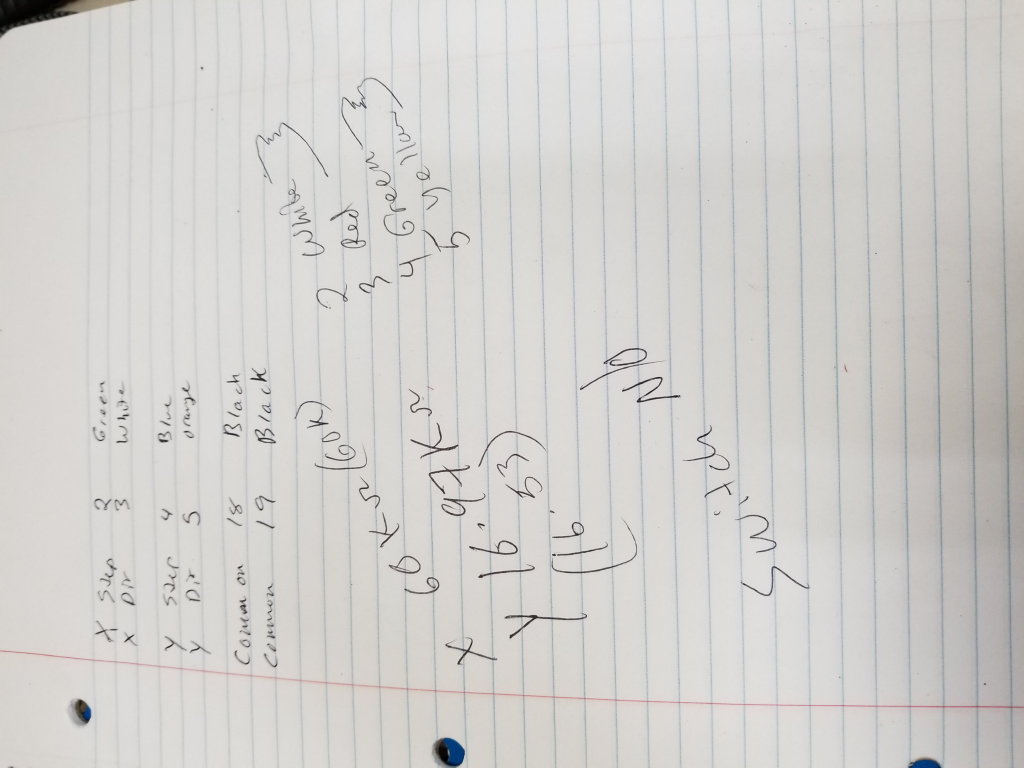 X Step 2 Green
X Dir 3 White
Y Step 4 Blue
Y Dir 5 orange
Common 18 Black
Common 19 Black
(60K)
2 White
3 Red
4 Green
5 yellow
X 60 K
Y 16.97K
(16.53)
NO
Switch